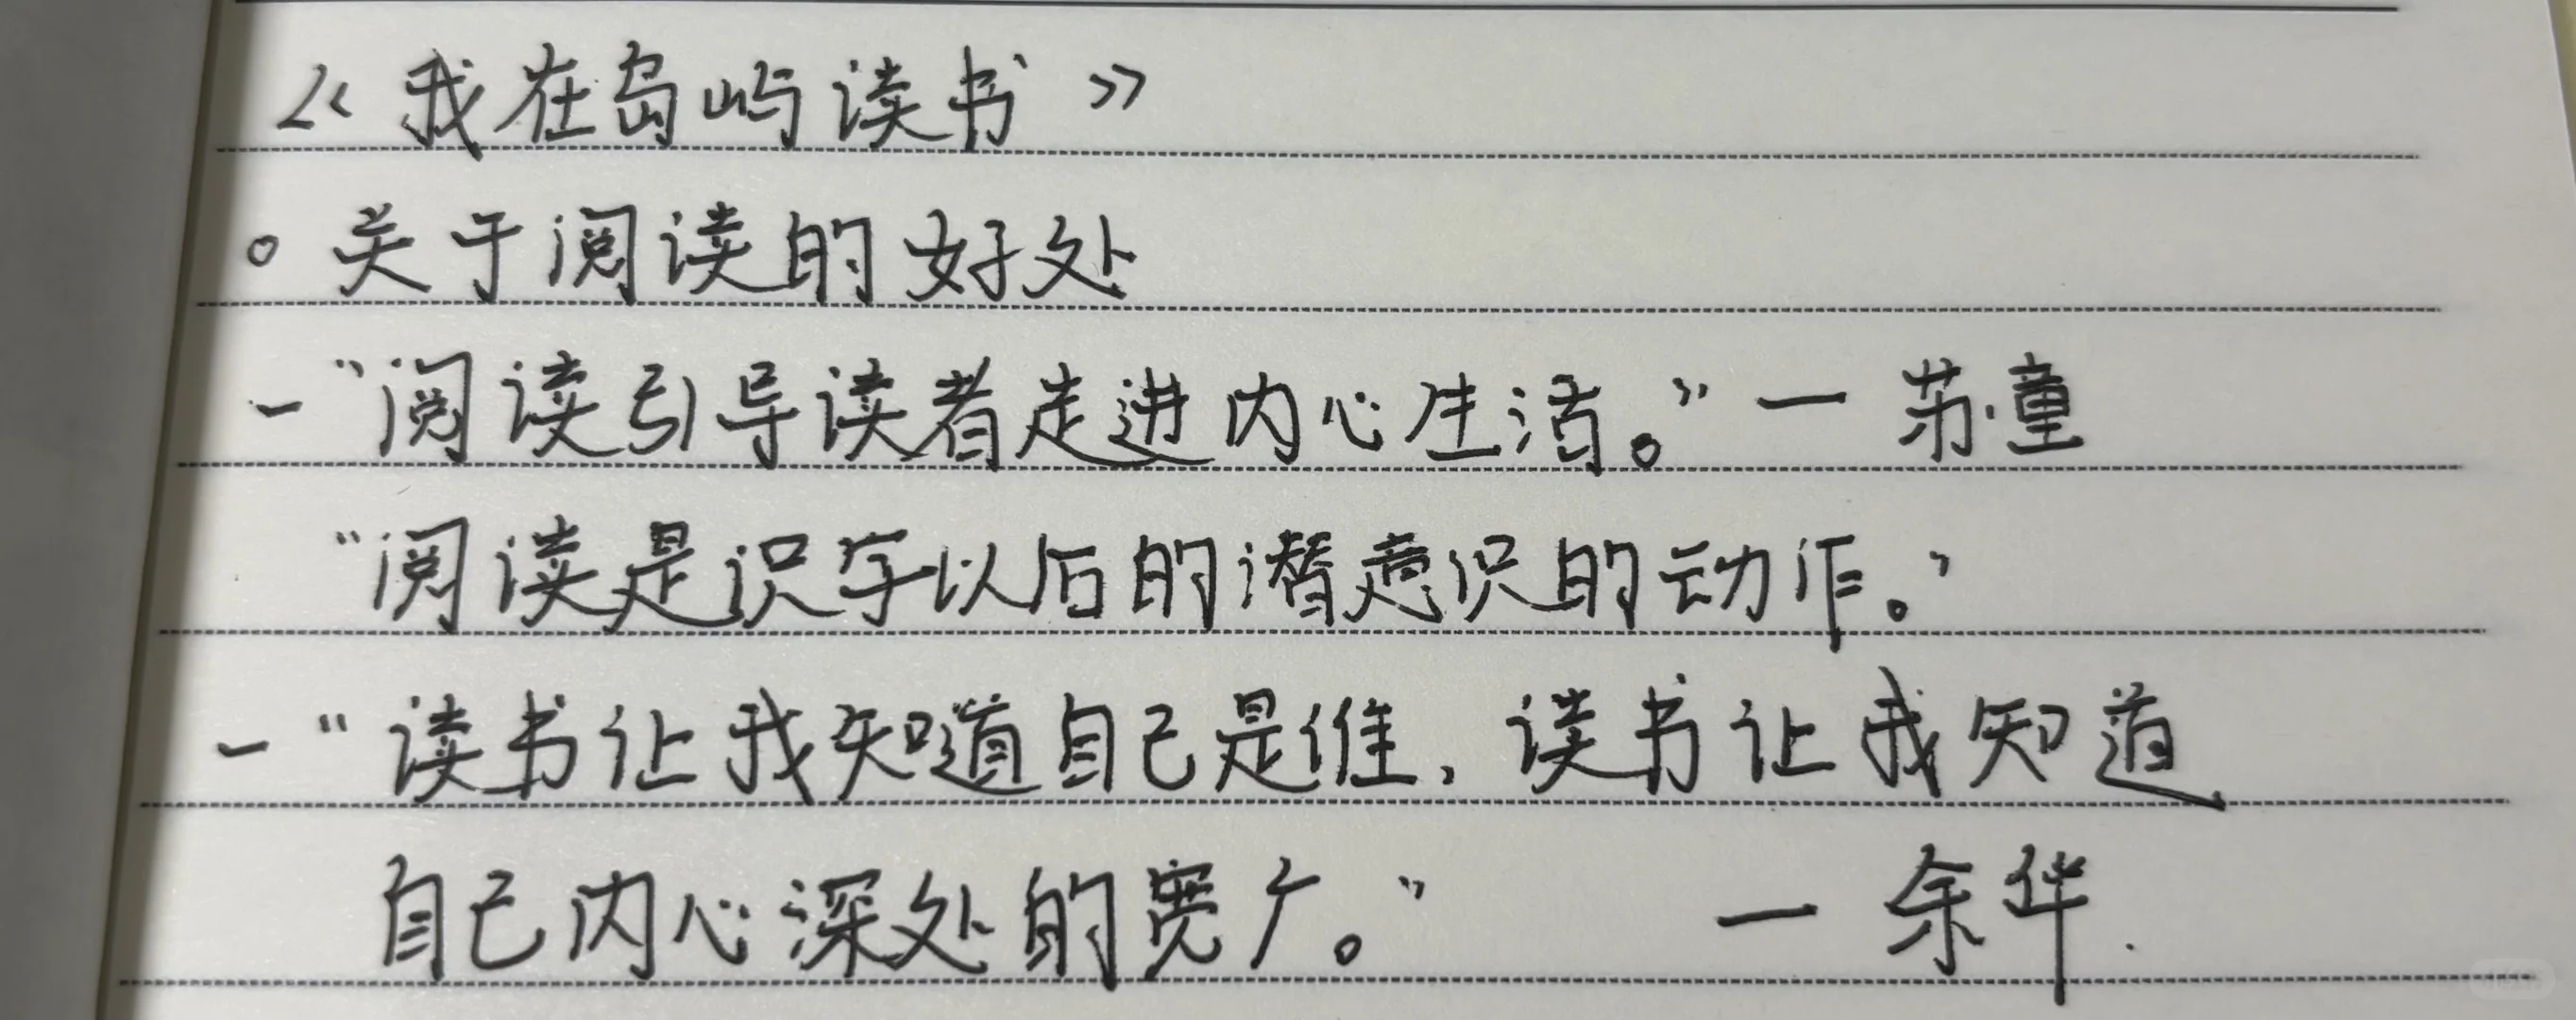 《我在岛屿读书》
○ 关于阅读的好处
- “阅读引导读者走进内心生活。” — 苏童
“阅读是识字以后的潜意识的动作。”
- “读书让我知道自己是谁，读书让我知道
自己内心深处的宽广。” — 余华